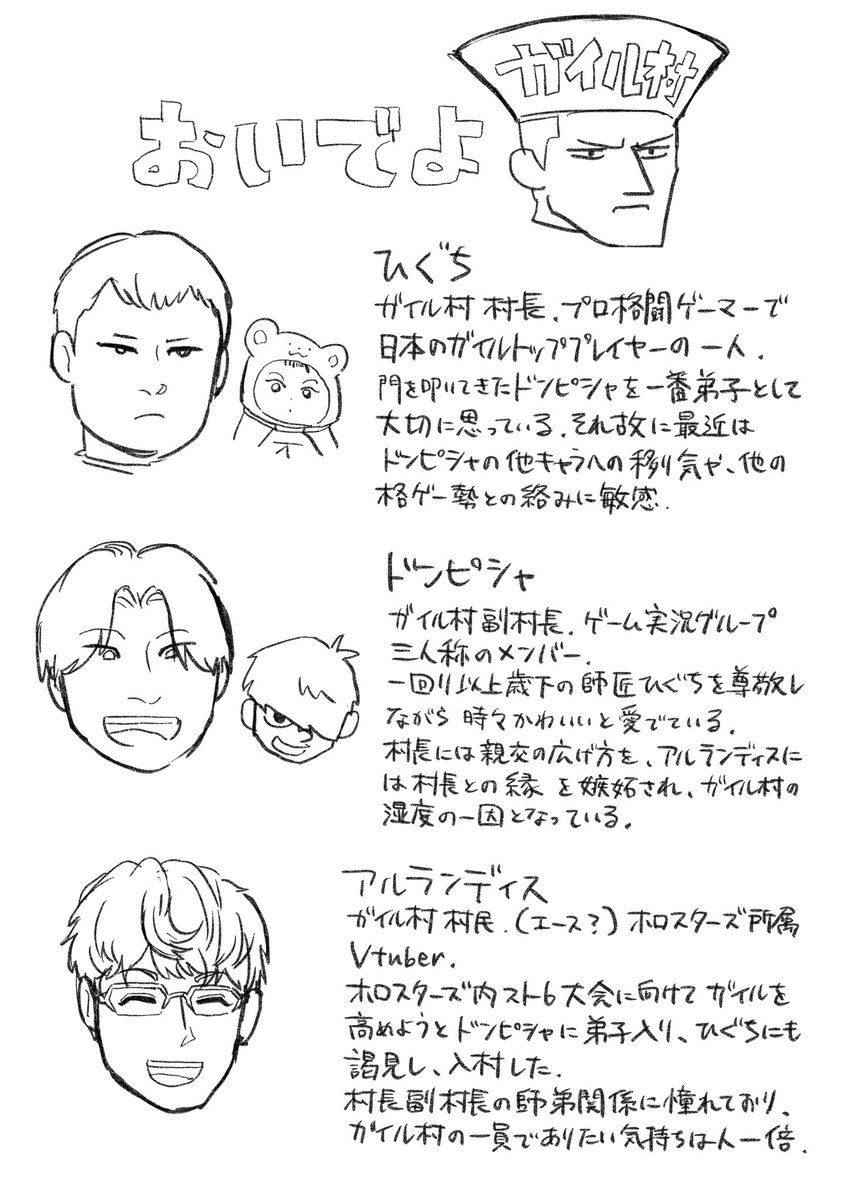 おいでよ
ガイル村
ひぐち
ガイル村 村長、プロ格闘ゲーマーで
日本のガイルトッププレイヤーの一人.
門を叩いてきたドンピシャを一番弟子として
大切に思っている.それ故に最近は
ドンピシャの他キャラへの移り気や、他の
格ゲー勢との絡みに敏感.
ドンピシャ
ガイル村副村長.ゲーム実況グループ
三人称のメンバー.
一回り以上歳下の師匠ひぐちを尊敬し
ながら 時々かわいいと愛でている.
村長には親交の広げ方を、アルランディスに
は村長との縁を嫉妬され、ガイル村の
湿度の一因となっている.
アルランディス
ガイル村 村民.(エース?)ホロスターズ所属
Vtuber.
ホロスターズ内スト6大会に向けて ガイルを
高めようとドンピシャに弟子入り、ひぐちにも
謁見し、入村した.
村長副村長の師弟関係に憧れており、
ガイル村の一員でありたい気持ちは人一倍.